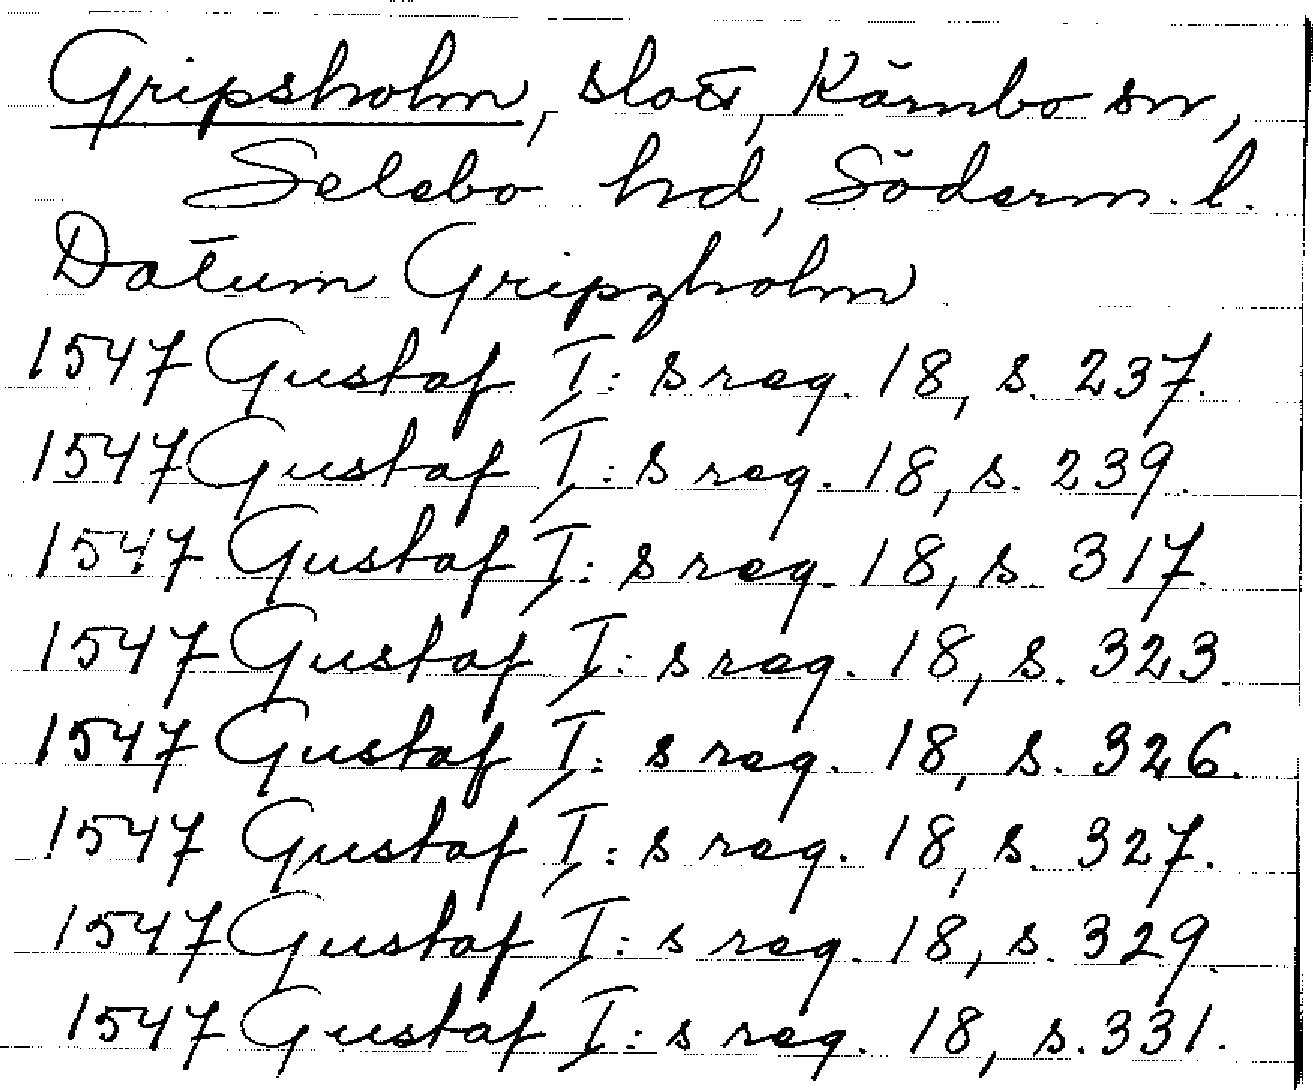 Gripsholm, slott, Kärnbo sn,
Selebo hd, Söderm. l.
Datum Gripzholm
1547 Gustaf I:s reg. 18, s. 237.
1547 Gustaf I:s reg. 18, s. 239.
1547 Gustaf I:s reg. 18, s. 317.
1547 Gustaf I:s reg. 18, s. 323.
1547 Gustaf I:s reg. 18, s. 326.
1547 Gustaf I:s reg. 18, s. 327.
1547 Gustaf I:s reg. 18, s. 329.
1547 Gustaf I:s reg. 18, s. 331.